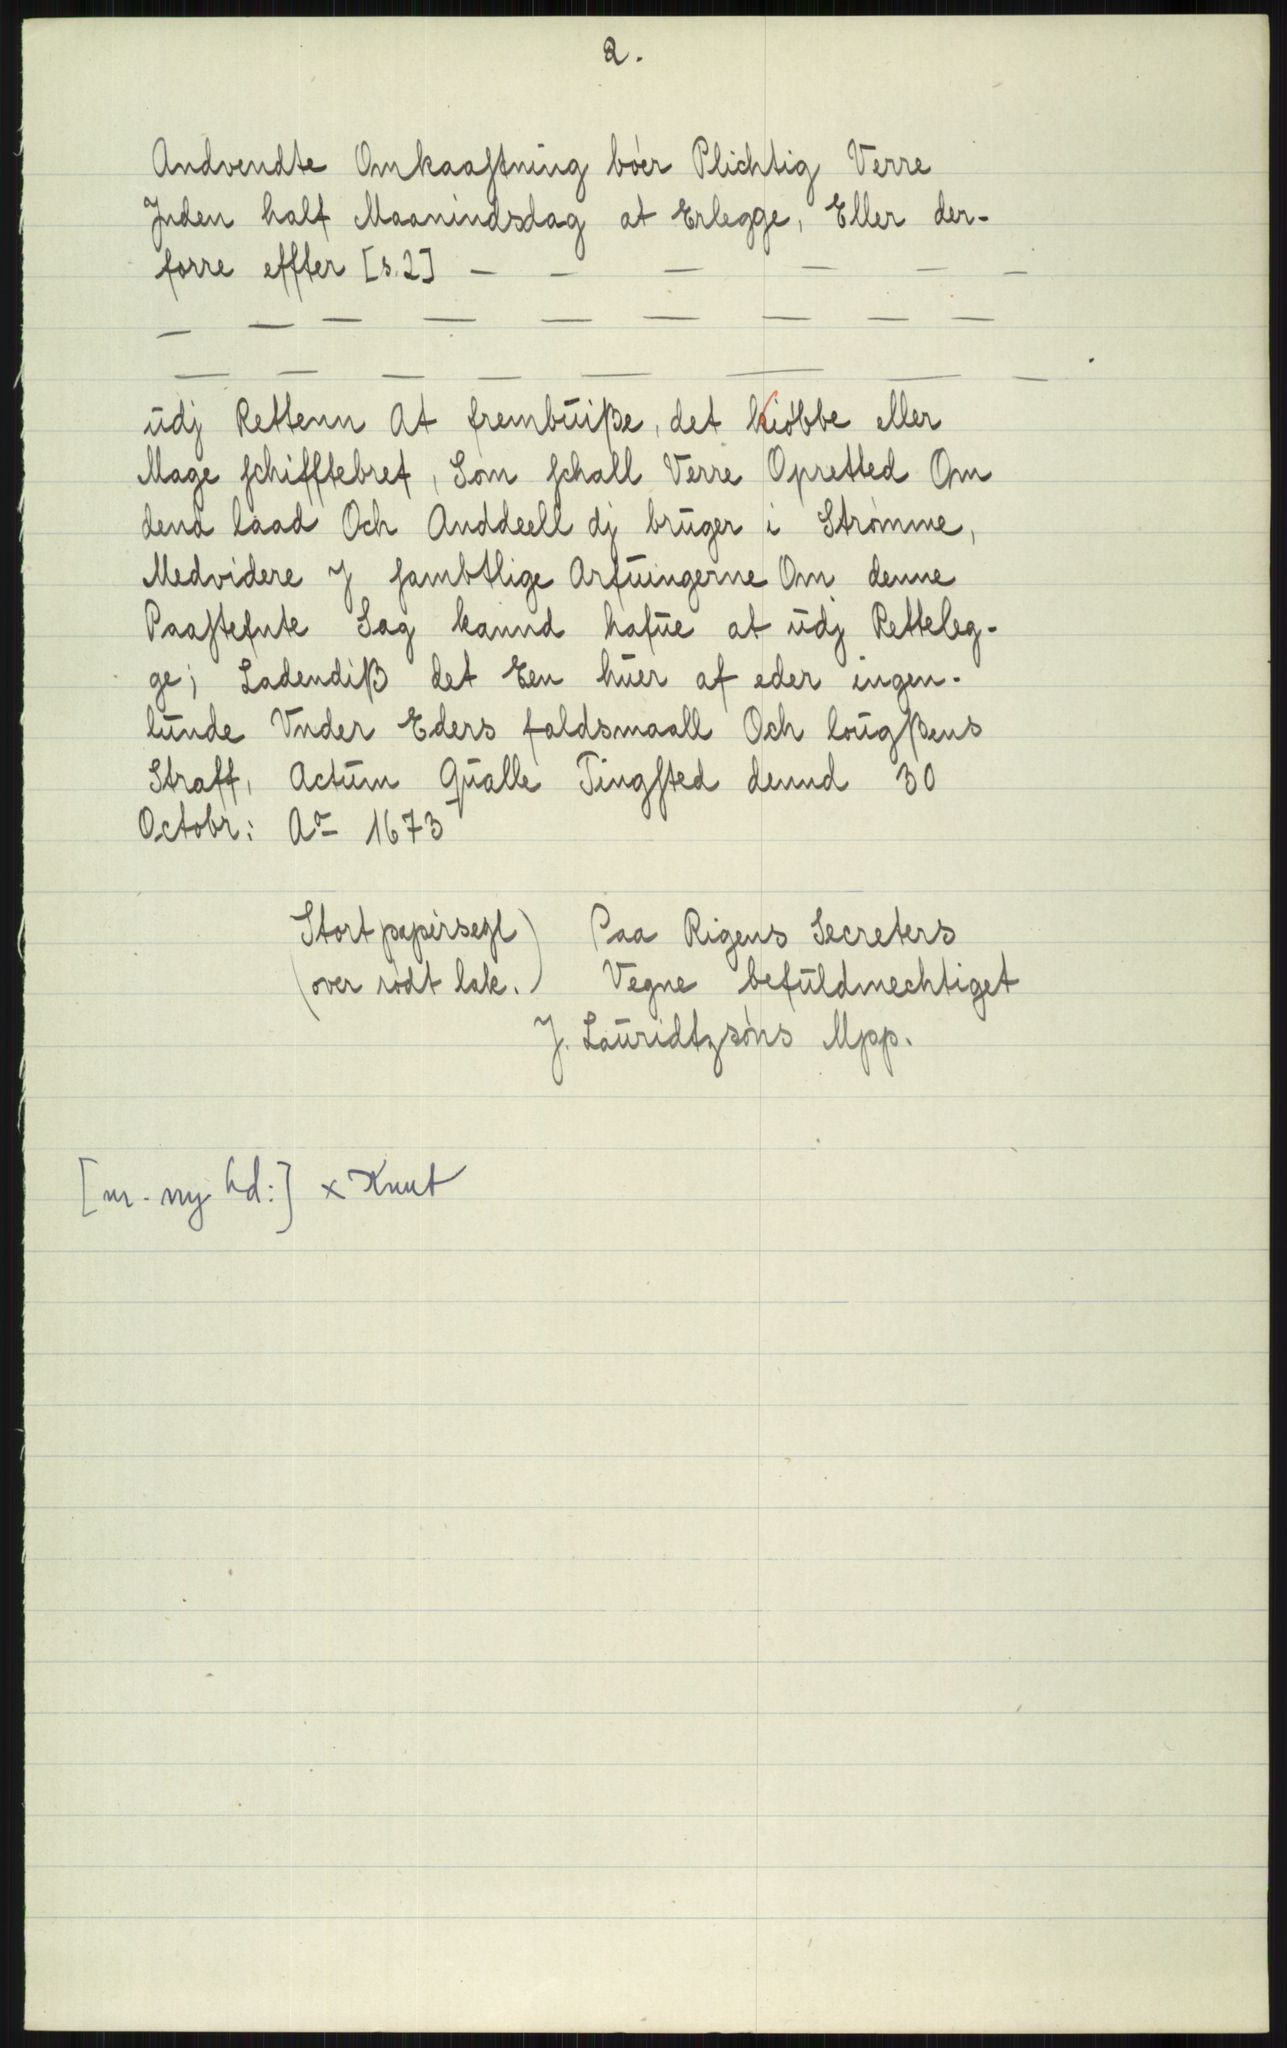 2.
Andvendte Omkaastning bóer Plichtig Verre
Jnden half Maanindsdag at Erlegge, Eller der-
forre effter [s.2] — — — — — —
— — — — — — — — —
— — — — — — — —
udj Rettenn At frembuiße, det kióbbe eller
Mage schifftebref, Som schall Verre Opretted Om
dend laad Och Anddeell dj bruger i Strømme,
Medvidere J sambtlige Arfuingerne Om denne
Paastefnte Sag kannd hafue at udj Retteleg-
ge; Ladendiß det Een huer af eder ingen-
lunde Vnder Eders faldsmaall Och lougßens
Straff, Actum Qualle Tingsted dennd 30
Octobr: Ao 1673
(Stort papirsegl over rødt lak.)
Paa Rigens Secreters
Vegne befuldmechtiget
J. Lauridtzsóns Mpp.
[m. ny hd:] x Knut